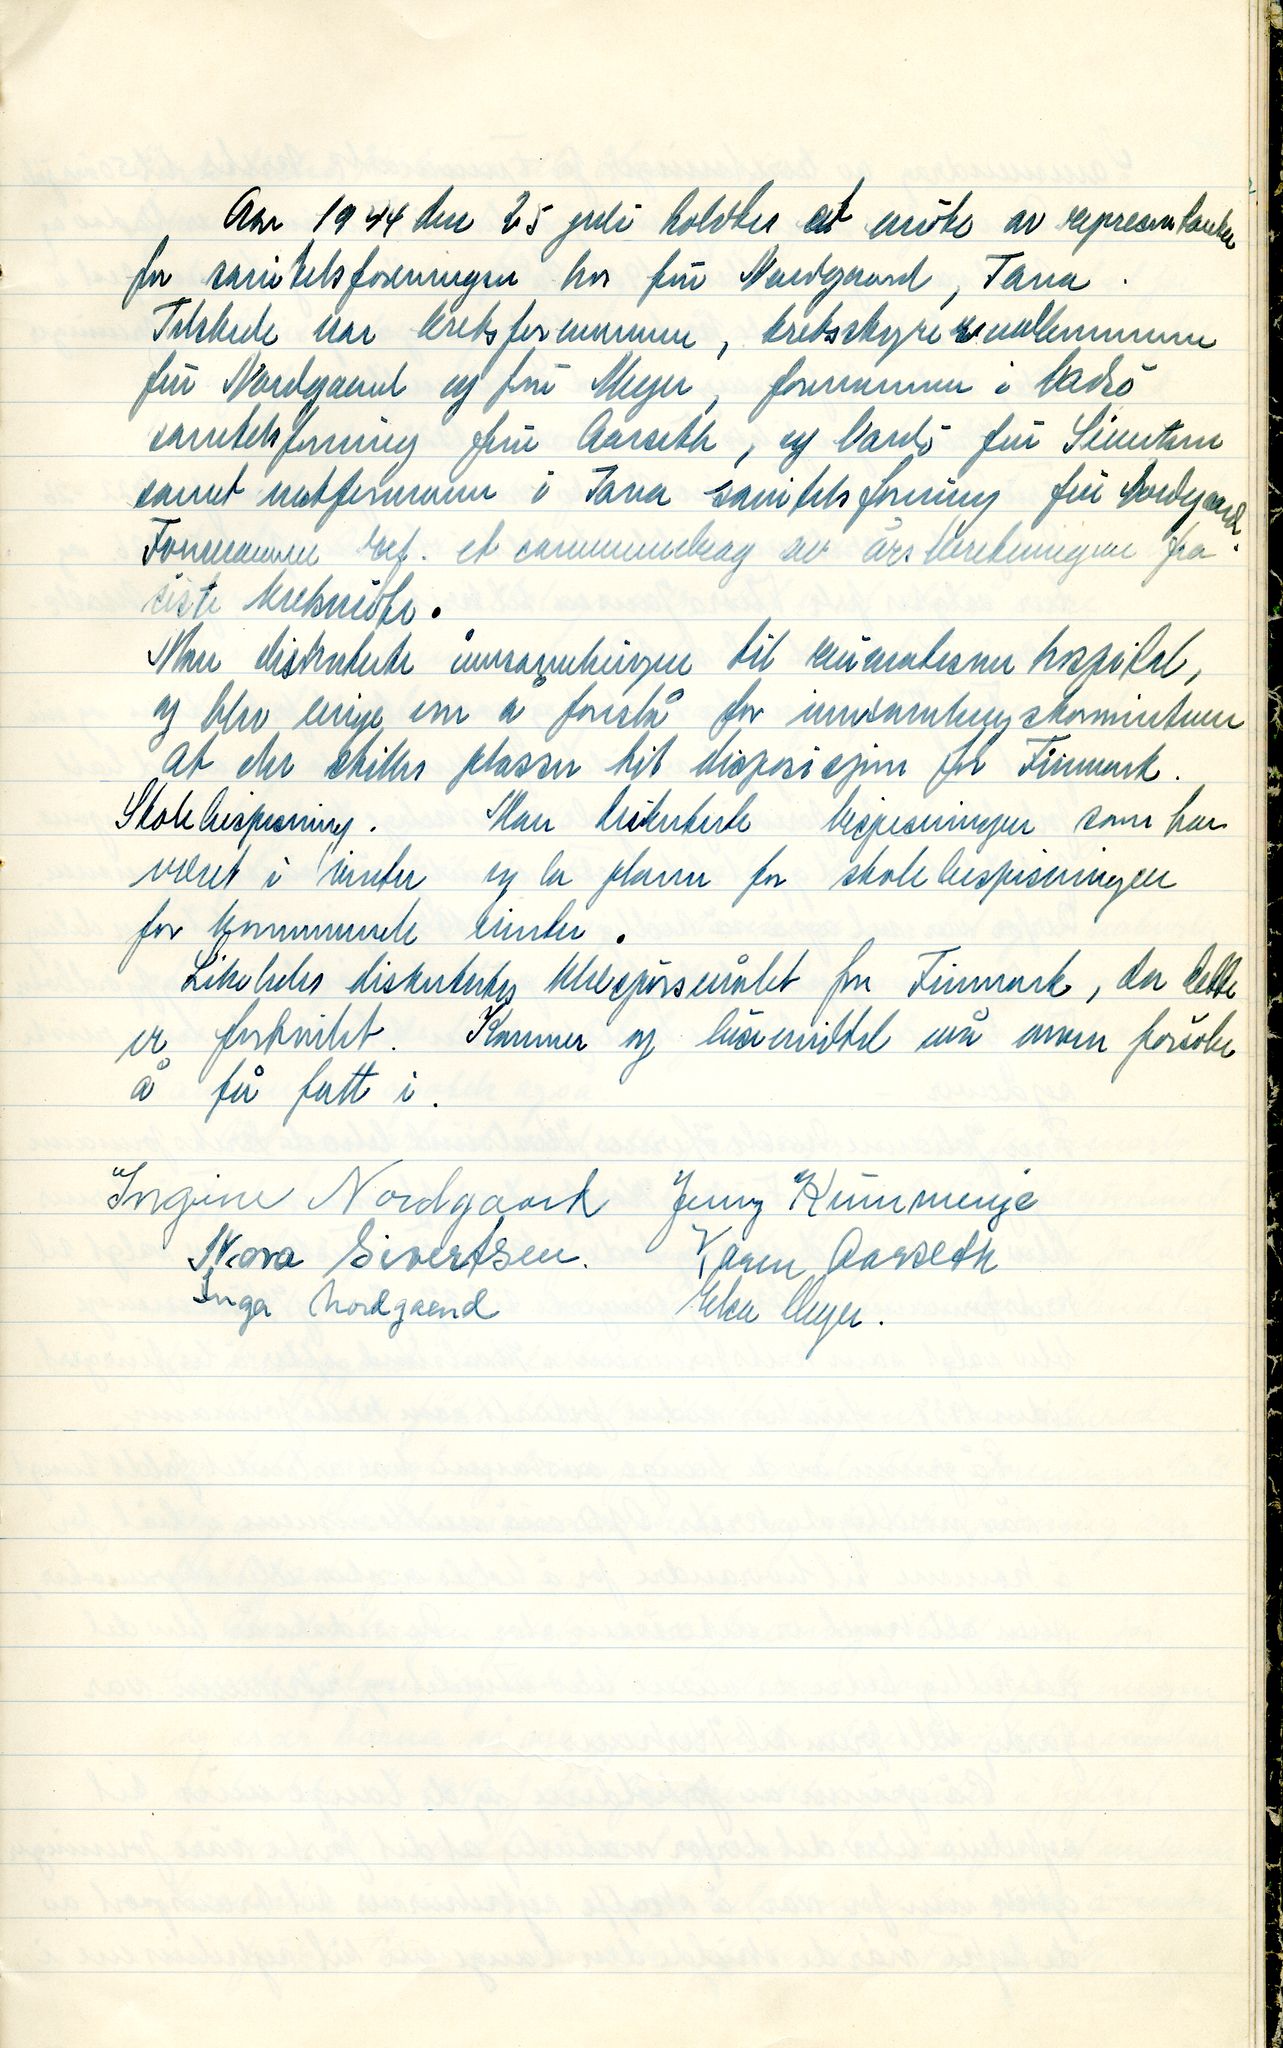 Aar 1944 den 25 juli holdtes et möte av representanter
for sanitetsforeningen hos frü Nordgaard, Tana.
Tilstede var kretsformannen, kretsstyremedlemmene
frü Nordgaard og frü Meyer, formannen i Vadsö
sanitetsforning frü Aarseth, og Vardö frü Sivertsen
samt nestformann i Tana sanitetsforning frü Nordgaard.
Formannen ref. et sammendrag av årsberetningene fra
siste kretsmöte.
Man diskuterte innsamlingen til reümatismehospital,
og blev enige om å foreslå for innsamlingskomiteen
at der stilles plasser til disposisjon for Finmark.
Skolebespisning. Man diskuterte bespisningen som har
vært i vinter og la planer for skolebespisningen
for kommende vinter.
Likeledes diskutertes klespörsmålet for Finmark, da dette
er fortvilet. Kammer og lüsemiddel må man forsöke
å få fatt i.
Ingine Nordgaard Jenny Kümmenje
Nora Sivertsen. Karen Aarseth
Inga Nordgaard Elsa Meyer.